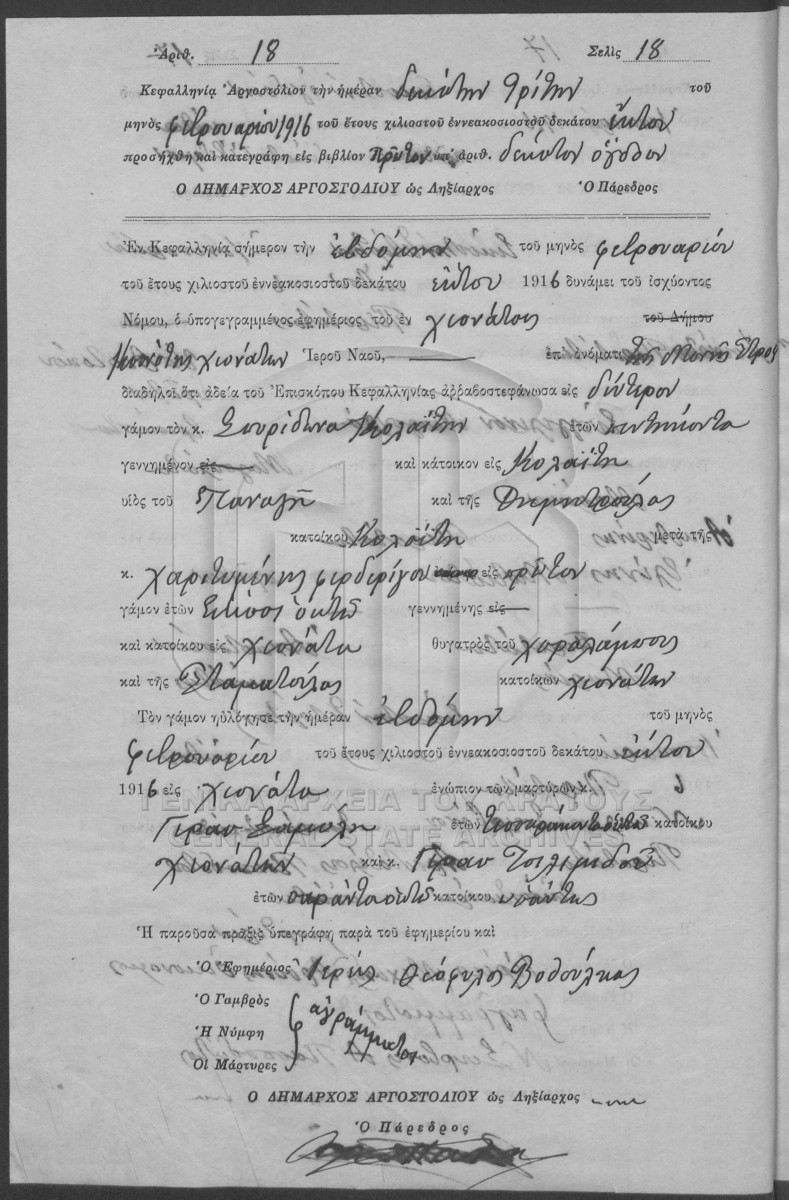 Ἀριθ. 18 Σελὶς 18
Κεφαλληνίᾳ Ἀργοστόλιον τὴν ἡμέραν δεκάτην τρίτην τοῦ
μηνὸς φεβρουαρίου 1916 τοῦ ἔτους χιλιοστοῦ ἐννεακοσιοστοῦ δεκάτου ἕκτου
προσήχθη καὶ κατεγράφη εἰς βιβλίον πρῶτον ὑπ' ἀριθ. δέκατον ὄγδοον
Ο ΔΗΜΑΡΧΟΣ ΑΡΓΟΣΤΟΛΙΟΥ ὡς Ληξίαρχος Ὁ Πάρεδρος
Ἐν Κεφαλληνίᾳ σήμερον τὴν ἑβδόμην τοῦ μηνὸς φεβρουαρίου
τοῦ ἔτους χιλιοστοῦ ἐννεακοσιοστοῦ δεκάτου ἕκτου 1916 δυνάμει τοῦ ἰσχύοντος
Νόμου, ὁ ὑπογεγραμμένος ἐφημέριος τοῦ ἐν χιονάτοις τοῦ Δήμου
χιονάτων Ἱεροῦ Ναοῦ, ἐπ' ὀνόματι τῆς Μονῆς
διαδηλοῖ ὅτι ἀδείᾳ τοῦ Ἐπισκόπου Κεφαλληνίας ἀῤῥαβοστεφάνωσα εἰς δεύτερον
γάμον τὸν κ. Σπυρίδωνα Κολαΐτην ἐτῶν πεντήκοντα
γεννημένον εἰς καὶ κάτοικον εἰς Κολαΐτη
υἱὸς τοῦ Παναγῆ καὶ τῆς Δημητρούλας
κατοίκου Κολαΐτη μετὰ τῆς
κ. χαριτωμένης φερδερίγου εἰς πρῶτον
γάμον ἐτῶν εἴκοσι ὀκτὼ γεννημένης εἰς
καὶ κατοίκου εἰς χιονάτα θυγατρὸς τοῦ χαραλάμπους
καὶ τῆς Σταματούλας κατοίκων χιονάτων
Τὸν γάμον ηὐλόγησε τὴν ἡμέραν ἑβδόμην τοῦ μηνὸς
φεβρουαρίου τοῦ ἔτους χιλιοστοῦ ἐννεακοσιοστοῦ δεκάτου ἕκτου
1916 εἰς χιονάτα ἐνώπιον τῶν μαρτύρων κ.
ΓΕΝΙΚΑ ΑΡΧΕΙΑ ΤΟΥ ΚΡΑΤΟΥΣ
Γερασ Σαμόλη ἐτῶν κατοίκου
GENERAL STATE ARCHIVES
χιονάτων καὶ κ. Γερασ Τσελιμίδου
ἐτῶν σαράντα ὀκτὼ κατοίκου ὡσαύτως
Ἡ παροῦσα πρᾶξις ὑπεγράφη παρὰ τοῦ ἐφημερίου καὶ
Ὁ Ἐφημέριος Ἱερεὺς Θεόφιλος
Ὁ Γαμβρὸς
Ἡ Νύμφη ἀγράμματοι
Οἱ Μάρτυρες
Ο ΔΗΜΑΡΧΟΣ ΑΡΓΟΣΤΟΛΙΟΥ ὡς Ληξίαρχος
Ὁ Πάρεδρος